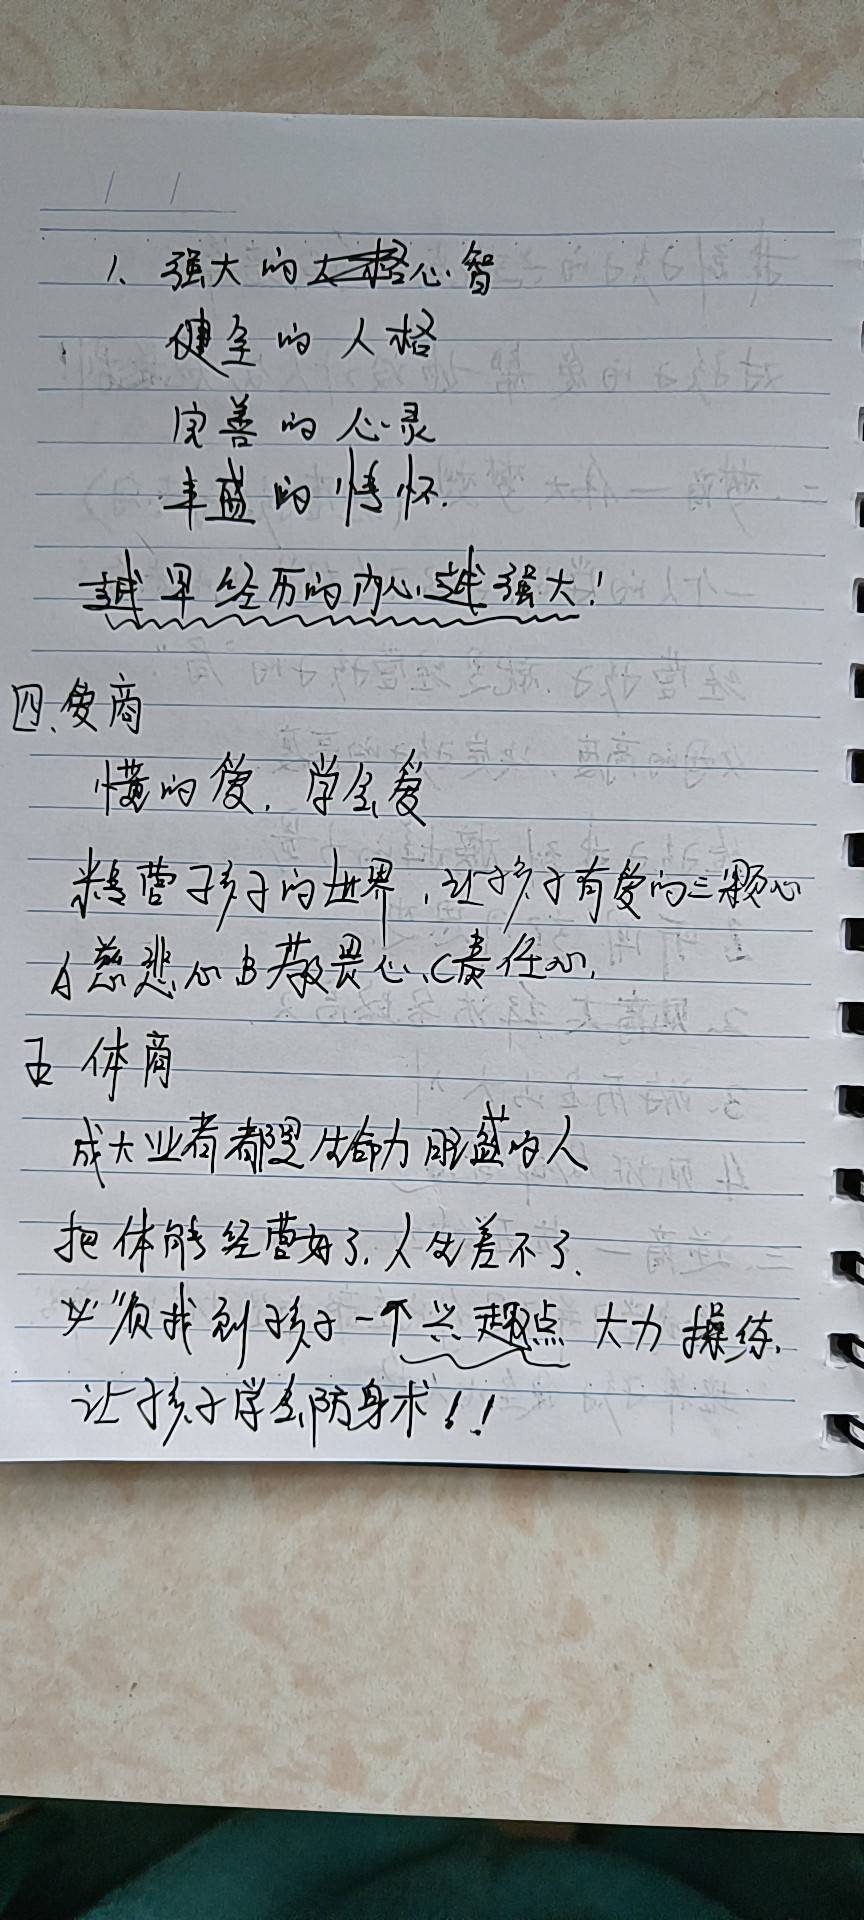 1、强大的心智
健全的人格
完善的心灵
丰盛的情怀.
越早经历的内心越强大!
四、爱商
懂的爱,学会爱
精营孩子的世界,让孩子有爱的三颗心
A慈悲心B敬畏心、C责任心,
五 体商
成大业者都是生命力旺盛的人
把体能经营好了,人生差不了.
必须找到孩子一个兴趣点 大力操练,
让孩子学会防身术!!